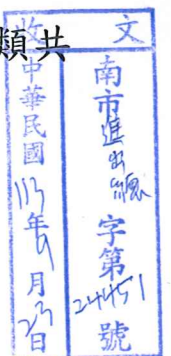 類共
收文
南市進出口
字第24451號
中華民國113年9月23日